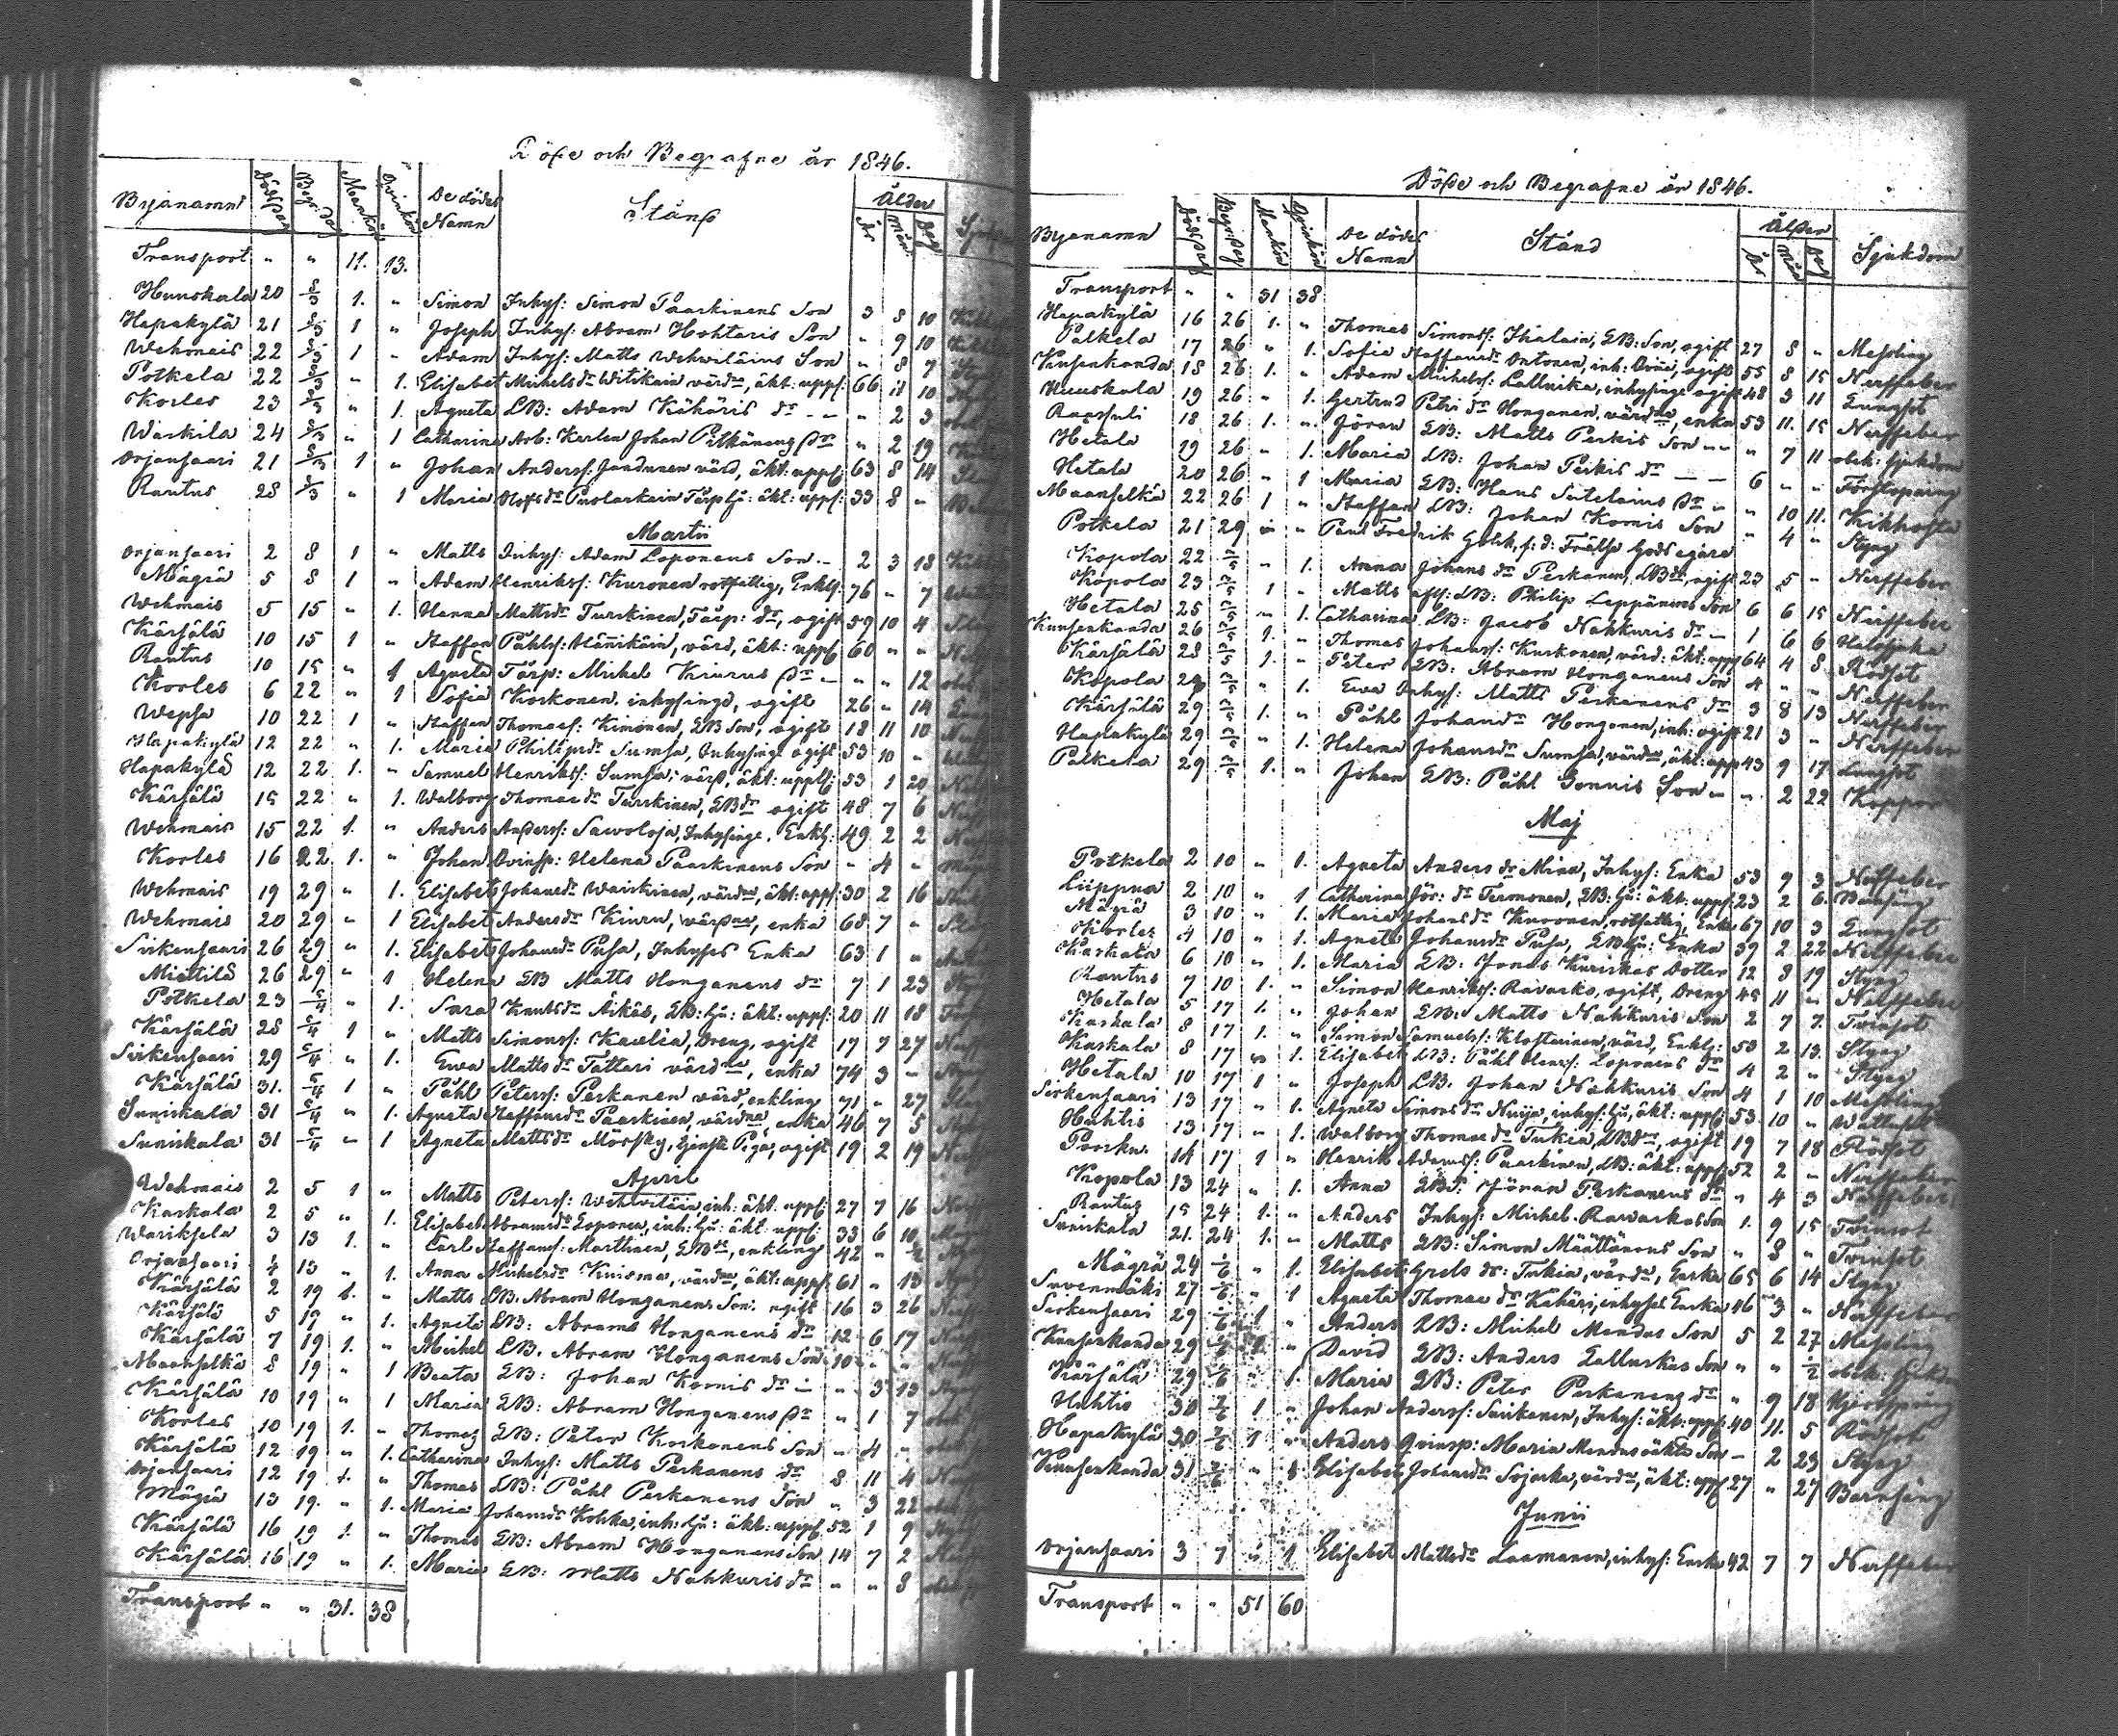 Döde och Begrafne år 1846.
Byanamn Dödsdag Begr:dag Mankön Qvinkön De dödes Namn Stånd Ålder år mån dag
Transport " " 11. 13.
Huuskala 20 8/3 1. " Simon Inhys: Simon Paarkinens Son 3 8 10
Hapakylä 21 8/3 1 " Joseph Inhys: Abram Hohtaris Son " 9 10
Wehmais 22 8/3 1 " Adam Inhys: Matts Wehwiläins Son " 8 7
Potkela 22 8/3 " 1. Elisabet Michels dr Witikain värdna, äkt: uppf: 66 11 10
Korles 23 8/3 " 1. Agneta LB: Adam Kähäris dr - - " 2 3
Warkila 24 8/3 " 1 Catharina Arb: Kerlen Johan Pitkänens dr " 2 19
Orjansaari 21 8/3 1 " Johan Anderss: Jandunen värd, äkt: uppf: 63 8 14
Rautus 28 8/3 " 1 Maria Olofs dr Puolarkain Torp: hu: äkt: uppf: 33 8 "
Martii
Orjansaari 2 8 1 " Matts Inhys: Adam Loponens Son - 2 3 18
Mägrä 5 8 1 " Adam Henrikss: Kuronen rotfattig, Enkl: 76 " 7
Wehmais 5 15 " 1. Hanna Mattsdr Turskinen, Torp: dr, ogift 59 10 4
Kärsälä 10 15 1 " Staffan Påhls: Hännikäin, värd, äkt: uppf 60 " "
Rautus 10 15 " 1 Agneta Torp: Michel Kiurus dr - " " 12
Korles 6 22 " 1 Sofia Korkonen, inhysings, ogift 26 " 14
Wepsa 10 22 1 " Staffan Thomass: Kimonen, LB Son, ogift 18 11 10
Hapakylä 12 22 " 1. Maria Philipsdr Sumsa, Inhysinge ogift 53 10 "
Hapakylä 12 22 1. " Samuel Henrikss: Sumsa, värd, äkt: uppf: 53 1 20
Kärsälä 15 22 " 1. Walborg Thomae dr Turskinen, LBdr ogift 48 7 6
Wehmais 15 22 1. " Anders Anderss: Sawoloja, Inhysinge, Enkl: 49 2 2
Korles 16 22 1. " Johan Qvinsp: Helena Paarkinens Son " 4 "
Wehmais 19 29 " 1. Elisabet Johansdr Waiskinen, värdna, äkt: uppf: 30 2 16
Wehmais 20 29 " 1 Elisabet Andersdr Kiuru, värdna, enka 68 7 "
Sirkensaari 26 29 " 1. Elisabet Johansdr Pusa, Inhyses Enka 63 1 "
Miettilä 26 29 " 1 Helena LB Matts Honganens dr 7 1 23
Potkela 23 5/4 " 1. Sara Knutsdr Äikäs, LB: hu: äkt: uppf: 20 11 18
Kärsälä 28 5/4 1 " Matts Simonss: Kawlia, Dreng, ogift 17 7 27
Sirkensaari 29 5/4 " 1. Ewa Mattsdr Tattari värdna, enka 74 3 "
Kärsälä 31. 5/4 1 " Påhl Peterss: Perkanen värd, enkling 71 " 27
Suniskala 31 5/4 " 1. Agneta Staffansdr Paarkinen, värdna, enka 46 7 5
Suniskala 31 5/4 " 1 Agneta Mattsdr Mörsky, tjenste Piga, ogift 19 2 19
April
Wehmais 2 5 1 " Matts Peterss: Wehwiläin, inh: äkt: uppf: 27 7 16
Kaskala 2 5 " 1. Elisabet Abramsdr Loponen, inh: hu: äkt: uppf: 33 6 10
Wariksela 3 13 1. " Carl Staffans: Marttinen, LBde, enkling 42 " 1/2
Orjansaari 4 13 " 1. Anna Michelsdr Kuisma, värdna, äkt: uppf: 61 " 13
Kärsälä 2 19 1. " Matts LB: Abram Honganens Son: ogift 16 3 26
Kärsälä 5 19 " 1. Agneta LB: Abrams Honganens dr 12 6 17
Kärsälä 7 19 1. " Michel LB. Abram Honganens Son 10 " "
Maanselkä 8 19 " 1 Beata LB: Johan Kornis dr - " 3 13
Kärsälä 10 19 " 1 Maria LB: Abram Honganens dr " 1 7
Korles 10 19 1. " Thomas LB: Peter Korkonens Son " 4 "
Kärsälä 12 19 " 1. Catharina Inhys: Matts Perkanens dr 8 11 4
Orjansaari 12 19 1. " Thomas LB: Påhl Perkanens Son " 3 22
Mägrä 13 19. " 1. Maria Johansdr Kohka, inh: hu: äkt: uppf: 52 1 9
Kärsälä 16 19 1. " Thomas LB: Abram Honganens Son 14 7 2
Kärsälä 16 19 " 1. Maria LB: Matts Nahkuris dr " " 8
Transport " " 31. 38
Döde och Begrafne år 1846.
Byanamn Dödsdag Begr:dag Mankön Qvinkön De dödes Namn Stånd Ålder år mån dag Sjukdom
Transport " " 31 38
Hapakylä 16 26 1. " Thomas Simonss: Ihalain, LB: Son, ogift 27 8 " Messling
Palkela 17 26 " 1. Sofia Staffansdr Ontonen, inh: Qvin, ogift 55 8 15 Nerffeber
Kunsenkanda 18 26 1. " Adam Michelss: Lallukka, inhysinge ogift 48 3 11 Lungsot
Huuskala 19 26 " 1. Gertrud Petri dr Honganen, värdna, enka 53 11. 15 Nerffeber
Raassuli 18 26 1. " Jöran LB: Matts Perkis Son - - " 7 11 obek: sjukdom
Hetala 19 26 " 1. Maria LB: Johan Perkis dr - - 6 " " Förstoparing
Hetala 20 26 " 1 Maria LB: Hans Sutelains dr - " 10 11. Kikhosta
Maanselkä 22 26 1 " Staffan LB: Johan Kornis Son " 4 " Styng
Potkela 21 29 " " Paul Fredrik f: d: Frälse Gods egare
Kopola 22 3/5 " 1. Anna Johans dr Perkanen, LBdr, ogift 23 5 " Nerffeber
Kopola 23 3/5 1 " Matts afl: LB: Philip Leppänens Son 6 6 15 Nerffeber
Hetala 25 3/5 " 1. Catharina LB: Jacob Nahkuris dr - 1 6 6 Halssjuka
Kunsenkanda 26 3/5 1. " Thomas Johanss: Kurkonen, värd: äkt: uppf 64 4 8 Rödsot
Kärsälä 28 3/5 1. " Peter LB: Abram Honganens Son 4 " " Nerffeber
Kopola 29 3/5 " 1. Ewa Inhys: Matts Perkanens dr 3 8 13 Nerffeber
Kärsälä 29 3/5 1. " Påhl Johansdr Honganen, inh: ogift 21 3 " Nerffeber
Hapakylä 29 3/5 " 1. Helena Johansdr Sumsa, värdna, äkt: uppf 43 9 17 Lungsot
Palkela 29 3/5 1. " Johan LB: Påhl Gonnis Son " " 2 22 Koppor
Maj
Potkela 2 10 " 1. Agneta Anders dr Mina, Inhys: Enka 53 9 3 Nerffeber
Liippua 2 10 " 1 Catharina Jör: dr Termonen, LB: hu: äkt: uppf: 23 2 6. Barnsäng
Mägrä 3 10 " 1. Maria Johans dr Kuronen, rotfattig, Enka 67 10 3 Lungsot
Korles 4 10 " 1. Agneta Johansdr Pusa, LB hu: Enka 39 2 22 Nerffeber
Kaskala 6 10 " 1. Maria LB: Jonas Kuriskas Dotter 12 8 19 Styng
Rautus 7 10 1. " Simon Henrikss: Rawarka, ogift, Dreng 45 11 " Nerffeber
Hetala 5 17 1. " Johan LB: Matts Nahkuris Son 2 7 7. Twinsot
Kaskala 8 17 1. " Simon Samuelss: Klostarinen, värd, Enkl: 50 2 13. Styng
Kaskala 8 17 " 1. Elisabet LB: Påhl Henrs: Loponens dr 4 2 " Styng
Hetala 10 17 1 " Joseph LB. Johan Nahkuris Son 4 1 10 Messling
Sirkensaari 13 17 " 1. Agneta Simonsdr Nuija, inhys: hu, äkt: uppf: 53. 10 " Wattusot
Huhtis 13 17 " 1. Walborg Thomae dr Tukia, LBdr, ogift 19 7 18 Rödsot
Porkn. 14 17 1 " Henrik Adamss: Paarkinen, LB: äkt: uppf: 52 2 " Nerffeber
Kopola 13 24 " 1. Anna LB: Jöran Perkanens dr " 4 3 Nerffeber
Rautus 15 24 1. " Anders Inhys: Michel Rawarkas Son 1. 9 15 Twinsot
Suniskala 21. 24 1. " Matts LB: Simon Määttänens Son " 8 " Twinsot
Mägrä 24 1/6 " 1. Elisabet Grels dr: Tukia, värdna, Enka 65 6 14 Styng
Suvenmäki 27 1/6 " 1 Agneta Thomae dr Kähäri, inhyses Enka 46 3 " Nerffeber
Sirkensaari 29 1/6 1 " Anders LB: Michel Mendus Son 5 2 27 Messling
Kunsenkanda 29 1/6 1 " David LB: Anders Lallukas Son " " 1/2 obek: sjukdm
Kärsälä 29 1/6 " 1. Maria LB: Peter Perkanens dr " 9 18 Hjertsprång
Huhtis 30 2/6 1 " Johan Anderss: Suikanen, Inhys: äkt: uppf: 40 11. 5 Rödsot
Hapakylä 30 2/6 1 " Anders Qvinsp: Maria Mendus oäkta Son - 2 23 Styng
Kunsenkanda 31 2/6 " 1 Elisabet Johansdr Sojuka, värdna, äkt: uppf 27 " 27 Barnsäng
Junii
Orjansaari 3 7 " 1 Elisabet Mattsdr Laamanen, inhys: Enka 42 7 7 Nerffeber
Transport " " 51 60